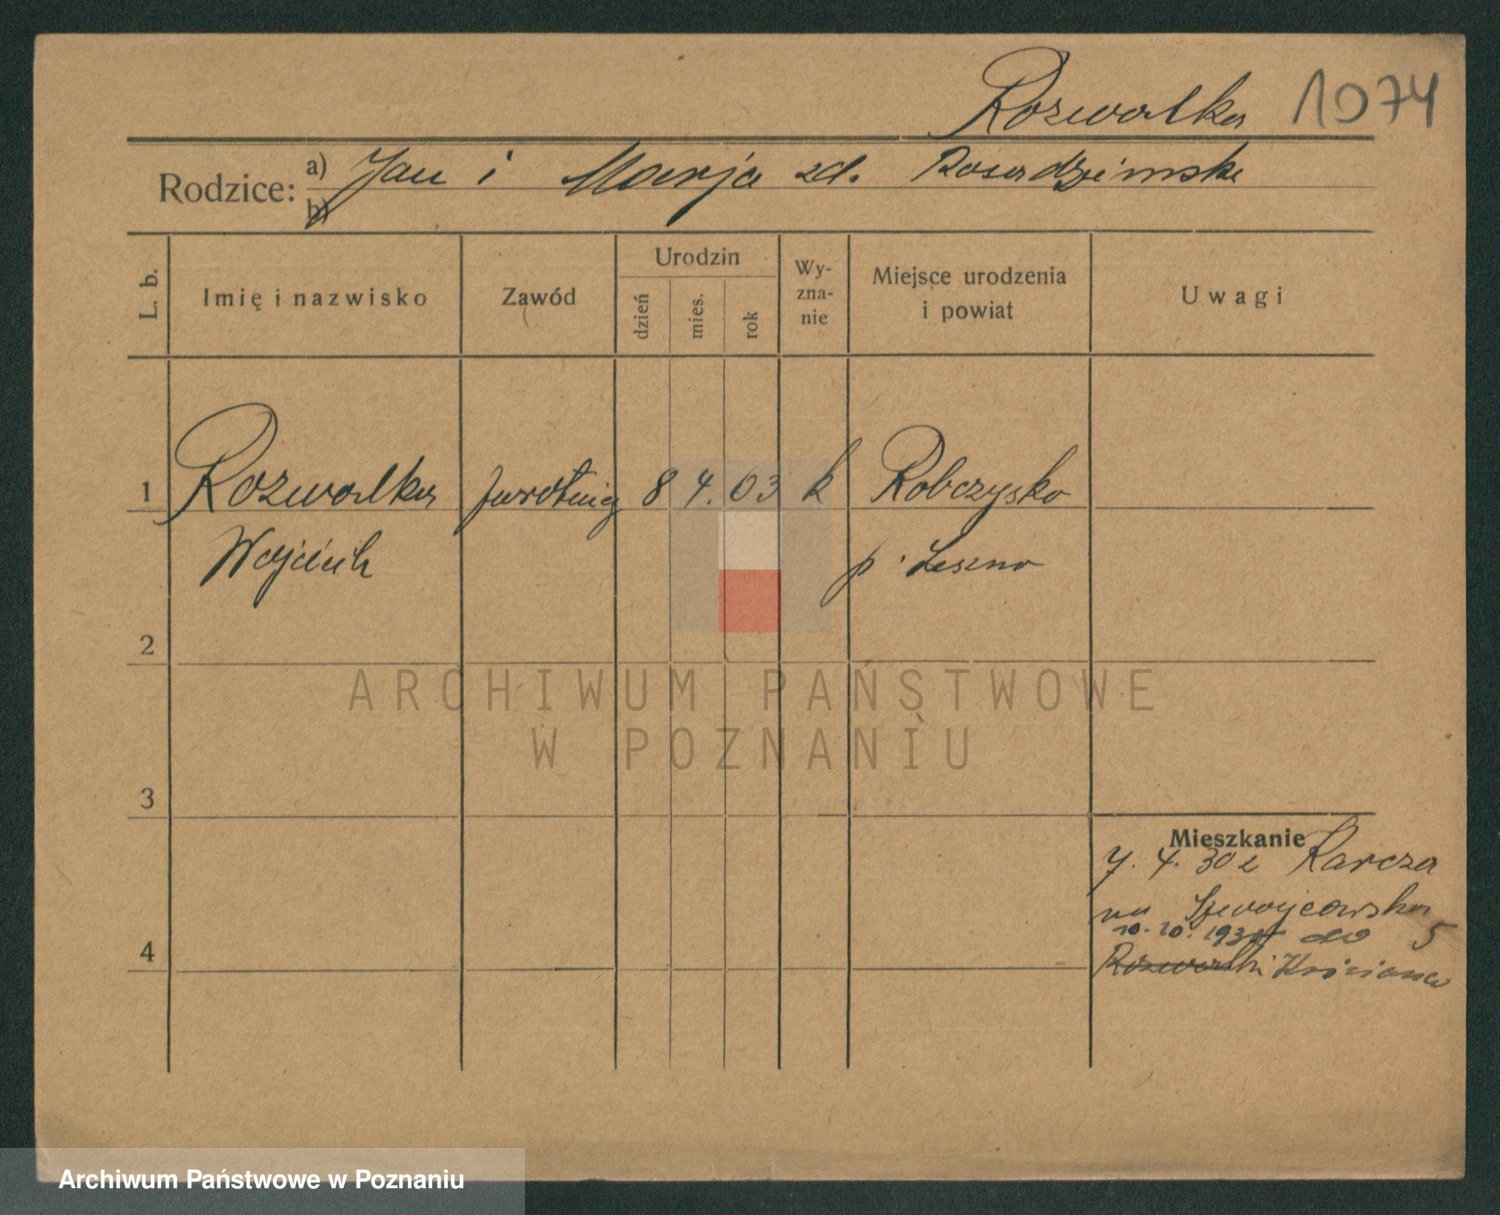 Rozwalka 1074
Rodzice: a) Jan i Marja zd.
b)
L. b. Imię i nazwisko Zawód Urodzin dzień mies. rok Wy-zna-nie Miejsce urodzenia i powiat Uwagi
1 Rozwalka 8 4. 03 k Robczysko
Wojciech p. Leszno
2
ARCHIWUM PAŃSTWOWE
W POZNANIU
3
Mieszkanie
7. 4. 30 z Karcza
na 5
10. 10. 193 do
4
Archiwum Państwowe w Poznaniu